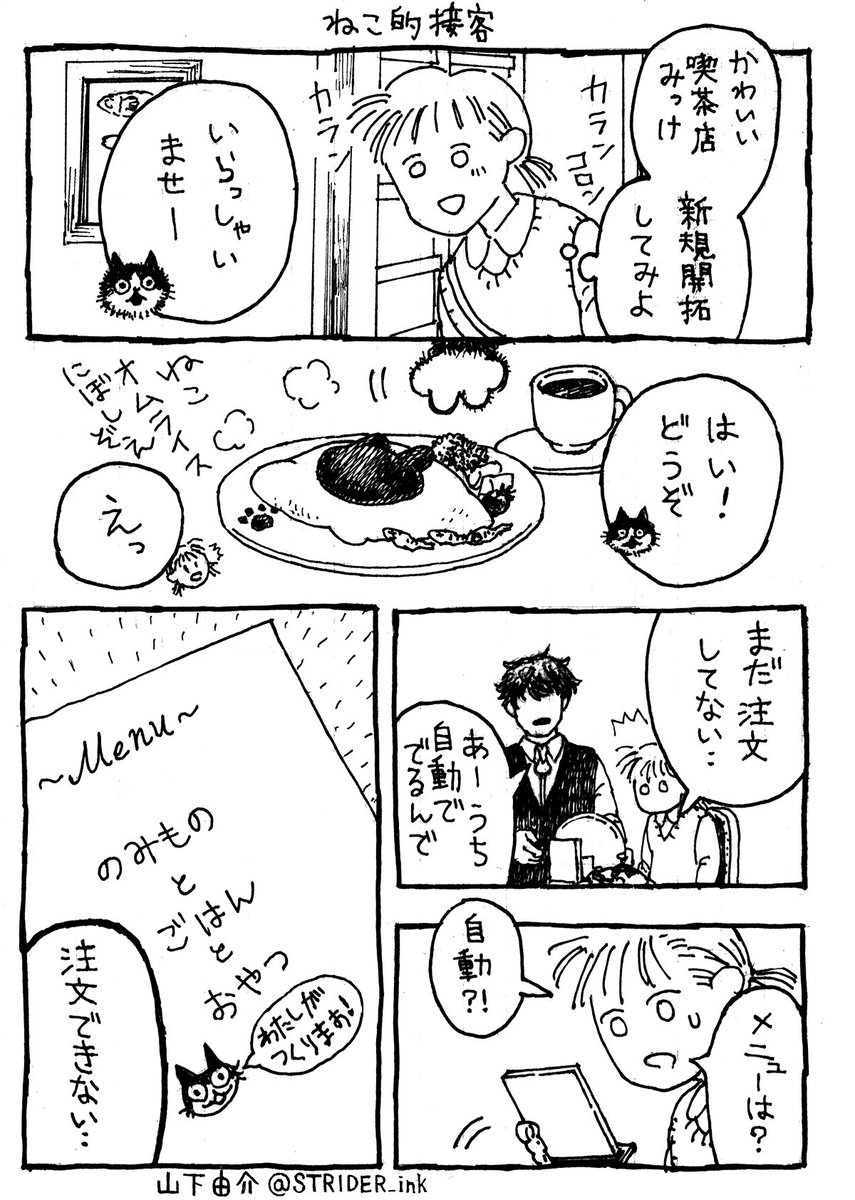 ねこ的接客
かわいい
喫茶店
みっけ
新規開拓
してみよ
カラン
コロン
カラン
いらっしゃい
ませー
はい!
どうぞ
ねこ
オムライス
にぼしぞえ
えっ
まだ注文
してない‥
あーうち
自動で
でるんで
自動?!
メニューは?
~Menu~
のみもの
と
ごはん
と
おやつ
わたしが
つくりまお!
注文できない‥
山下由介 @STRIDER_ink